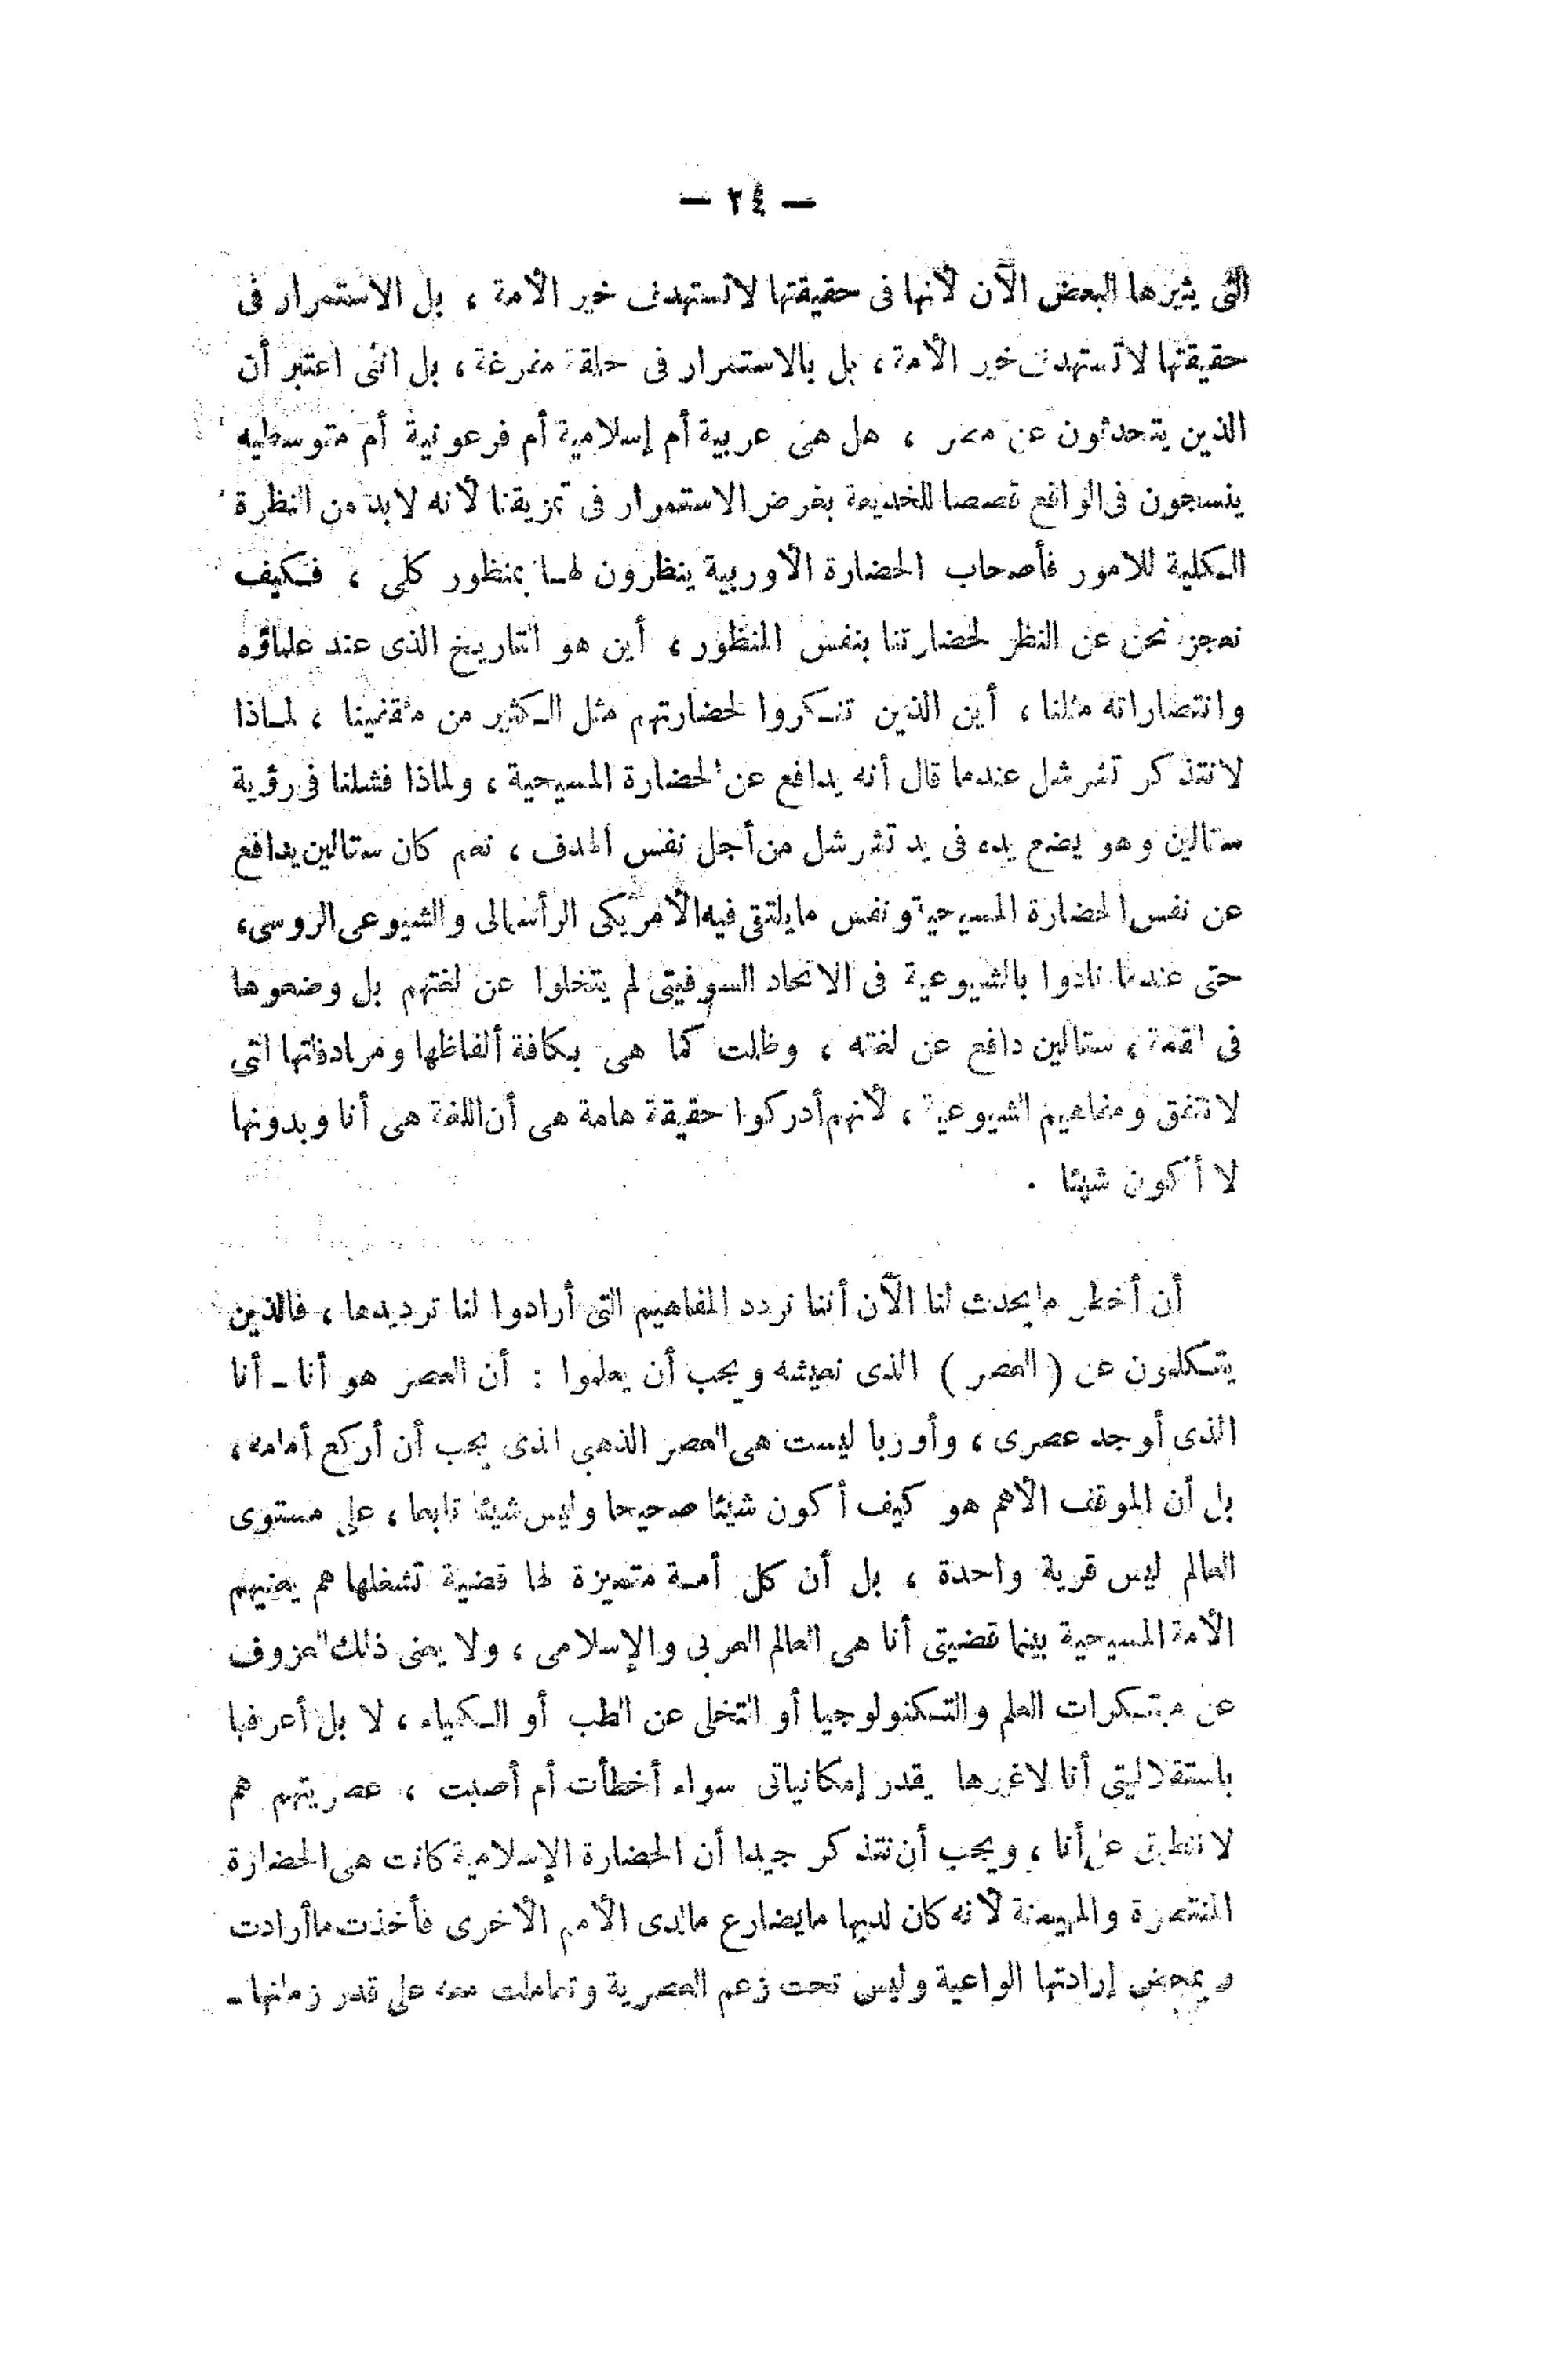 — ٢٤ —
التى يثيرها البعض الآن لأنها فى حقيقتها لا تستهدف خير الأمة ، بل الاستمرار فى
حقيقتها لا تستهدف خير الأمة ، بل بالاستمرار فى حلقة مفرغة ، بل اننى اعتبر أن
الذين يتحدثون عن مصر ، هل هى عربية أم إسلامية أم فرعونية أم متوسطيه
ينسجون فى الواقع قصصا للخديعة بغرض الاستمرار فى تمزيقنا لأنه لابد من النظرة
الكلية للامور فأصحاب الحضارة الأوربية ينظرون لها بمنظور كلى ، فكيف
نعجز نحن عن النظر لحضارتنا بنفس المنظور ، أين هو التاريخ الذى عند علماؤه
وانتصاراته مثلنا ، أين الذين تنكروا لحضارتهم مثل الكثير من مثقفينا ، لماذا
لا نتذكر تشرشل عندما قال أنه يدافع عن الحضارة المسيحية ، ولماذا فشلنا فى رؤية
ستالين وهو يضع يده فى يد تشرشل من أجل نفس الهدف ، نعم كان ستالين يدافع
عن نفس الحضارة المسيحية ونفس ما يلتقى فيه الأمريكى الرأسمالى والشيوعى الروسى،
حتى عندما نادوا بالشيوعية فى الاتحاد السوفيتى لم يتخلوا عن لغتهم بل وضعوها
فى القمة ، ستالين دافع عن لغته ، وظلت كما هى بكافة ألفاظها ومرادفاتها التى
لا تتفق ومفاهيم الشيوعية ، لأنهم أدركوا حقيقة هامة هى أن اللغة هى أنا وبدونها
لا أكون شيئا .
أن أخطر ما يحدث لنا الآن أننا نردد المفاهيم التى أرادوا لنا ترديدها ، فالذين
يتكلمون عن ( العصر ) الذى نعيشه ويجب أن يعلموا : أن العصر هو أنا ـ أنا
الذى أوجد عصرى ، وأوربا ليست هى العصر الذهبى الذى يجب أن أركع أمامه،
بل أن الموقف الأهم هو كيف أكون شيئا صحيحا وليس شيئا تابعا ، على مستوى
العالم ليس قرية واحدة ، بل أن كل أمة متميزة لها قضية تشغلها هم يعنيهم
الأمة المسيحية بينما قضيتى أنا هى العالم العربى والإسلامى ، ولا يعنى ذلك العزوف
عن مبتكرات العلم والتكنولوجيا أو التخلى عن الطب أو الكيمياء ، لا بل أعرفها
باستقلاليتى أنا لا غيرها بقدر إمكانياتى سواء أخطأت أم أصبت ، عصريتهم هم
لا تنطبق على أنا ، ويجب أن نتذكر جيدا أن الحضارة الإسلامية كانت هى الحضارة
المنتصرة والمهيمنة لأنه كان لديها ما يضارع مالدى الأمم الأخرى فأخذت ما أرادت
وبمحض إرادتها الواعية وليس تحت زعم العصرية وتعاملت معه على قدر زمانها ـ